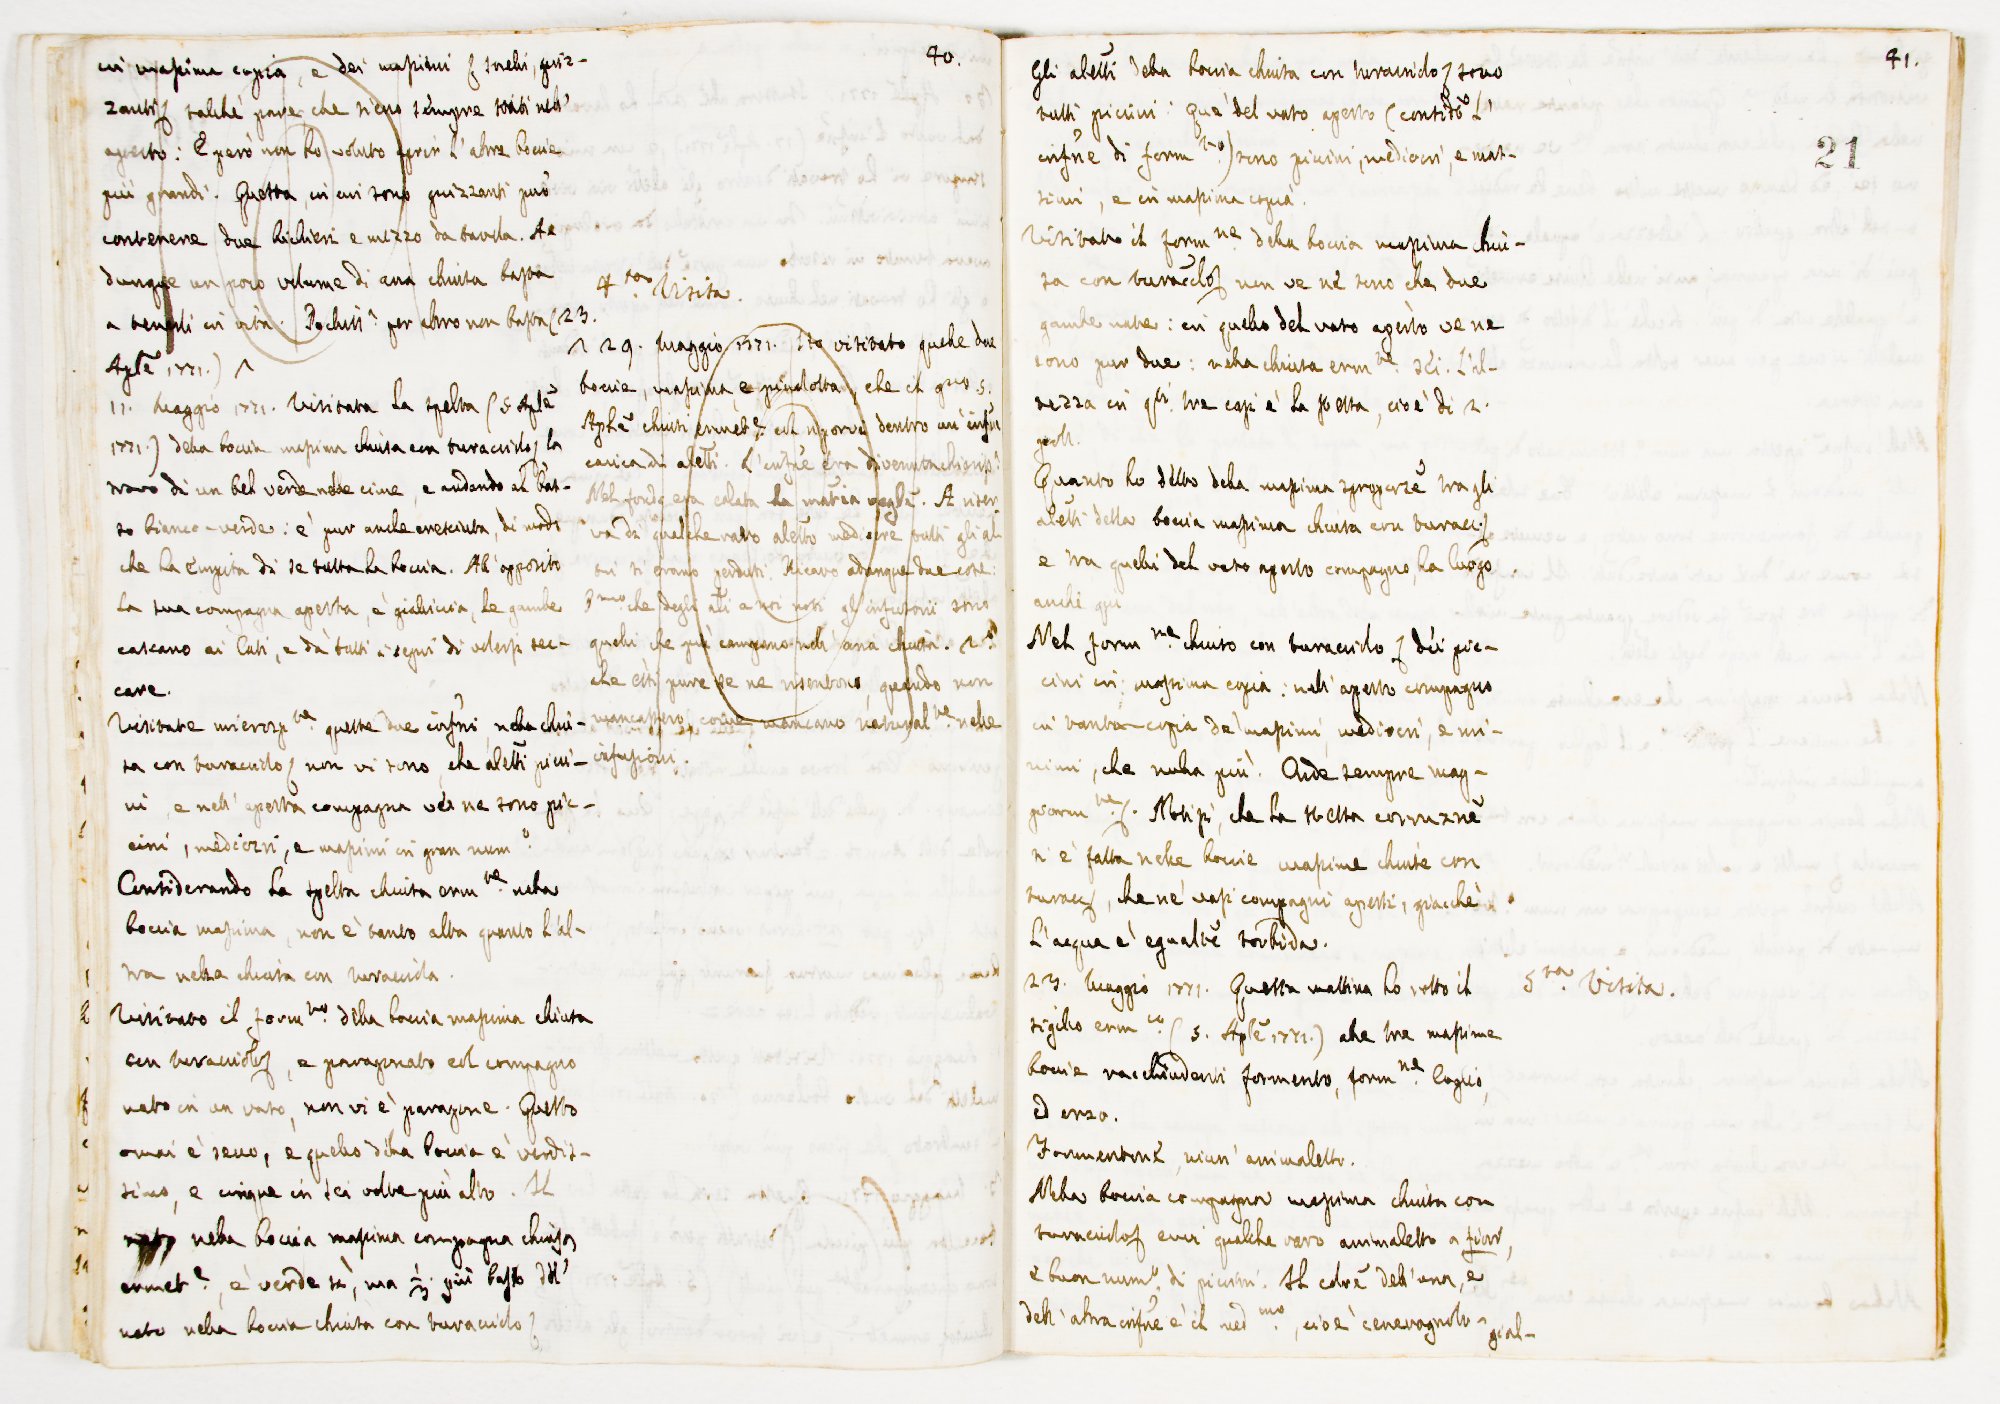 40.
in massima copia, e dei massimi ʃ snelli, guiz-
zanti ʃ talchè pare che sieno sempre stati nell'
aperto: E però non ho voluto aprir l'altre boccie
più grandi. Questa, in cui sono guizzanti può
contenere due bichieri e mezzo da tavola. A
dunque un poco volume di aria chiusa basta
a tenerli in vita. per altro non basta (23.
Aple 1771.) ^
11. Maggio 1771. Visitata la spelta (5 Aple
1771.) della boccia massima chiusa con turacciolo ʃ la
trovo di un bel verde nelle cime, e andando al bas-
so bianco-verde: è pur anche cresciuta, di modo
che ha empita di se tutta la boccia. All'opposito
la sua compagna aperta, è gialiccia, le gambe
cascano ai lati, e dà tutti i segni di volersi sec-
care.
Visitate microsp te queste due infsni, nella chiu-
sa con turacciolo ʃ non vi sono, che aletti picci-
ni, e nell'aperta compagna ve ne sono pic-
cini, mediocri, e massimi in gran num o
Considerando la spelta chiusa erm te nella
boccia massima, non è tanto alta quanto l'al-
tra nella chiusa con turacciolo.
Visitato il form to della boccia massima chiusa
con turacciolo ʃ, e paragonato col compagno
nato in un vaso, non vi è paragone. Questo
ormai è secco, e quello della boccia è verdis-
simo, e cinque in sei volte più alto. Il
nato nella boccia massima compagna chiusa
ermet e, è verde sì, ma 1/3 più basso del
nato nella boccia chiusa con turacciolo ʃ
4 ta Visita.
^ 29. Maggio 1771. Ho visitato quelle due
boccie, massima, e picciolotta, che il g no 5.
Aple chiusi ermet e col riporvi dentro un'infsne
carica di aletti. L'infsne era divenuta
Nel fondo era calata la materia vegle. A riser
va di qualche raro aletto mediocre tutti gli al
tri si erano perduti. Ricavo adunque due cose:
P mo che degli ali a noi noti gl'infusorii sono
quelli che più campano nell'aria chiusa. 2 o
che essi pure se ne risentono, quando non
mancassero, come mancano natural te nelle
infusioni.
41.
21
Gli aletti della boccia chiusa con turacciolo ʃ sono
tutti piccini: Que' del vaso aperto (contiene l'
infsne di form to) sono piccini, mediocri, e mas-
simi, e in massima copia.
Visitato il form ne della boccia massima chiu-
sa con turacciolo ʃ non ve nè sono che due
gambe nate: in quello del vaso aperto ve ne
sono pur due: nella chiusa erm te sei. L'al-
tezza in qsti tre capi è la stessa, cioè di 2.
poll.
Quanto ho detto della massima sproporzne tra gli
aletti della boccia massima chiusa con turacc. ʃ
e tra quelli del vaso aperto compagno, ha luogo
anche qui
Nel form ne chiuso con turacciolo ʃ dei pic-
cini in massima copia: nell'aperto compagno
in tanta copia de' massimi, mediocri, e mi-
nimi, che nulla più. Onde sempre mag-
giorm te ʃ. Notisi, che la stessa corruzne
si è fatta nelle boccie massime chiuse con
turacc ʃ, che ne' vasi compagni aperti, giacchè
l'acqua è egualte torbida.
23. Maggio 1771. Questa mattina ho rotto il
sigillo erm co (5. Aple 1771.) alle tre massime
boccie racchiudenti formento, form ne loglio,
ed orzo.
Formentone, niun'animaletto.
Nella boccia compagna massima chiusa con
turacciolo ʃ evvi qualche raro animaletto a fiori,
e buon num o di piccini. Il colore dell'una, e
dell'altra infsne è il med mo, cioè cenerognolo - gial-
5 ta Visita.